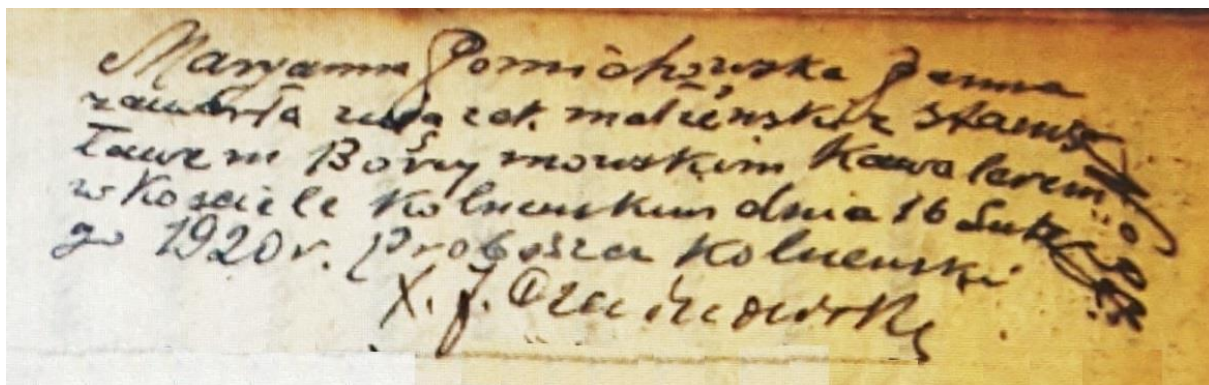 Maryanna Pomichowska Panna
zawarła związek małżeński z Stanis
ławem Borzymowskim Kawalerem
w Kościele Kolneńskim dnia 16 Lute
go 1920 r. Proboszcz Kolneński
X. J.